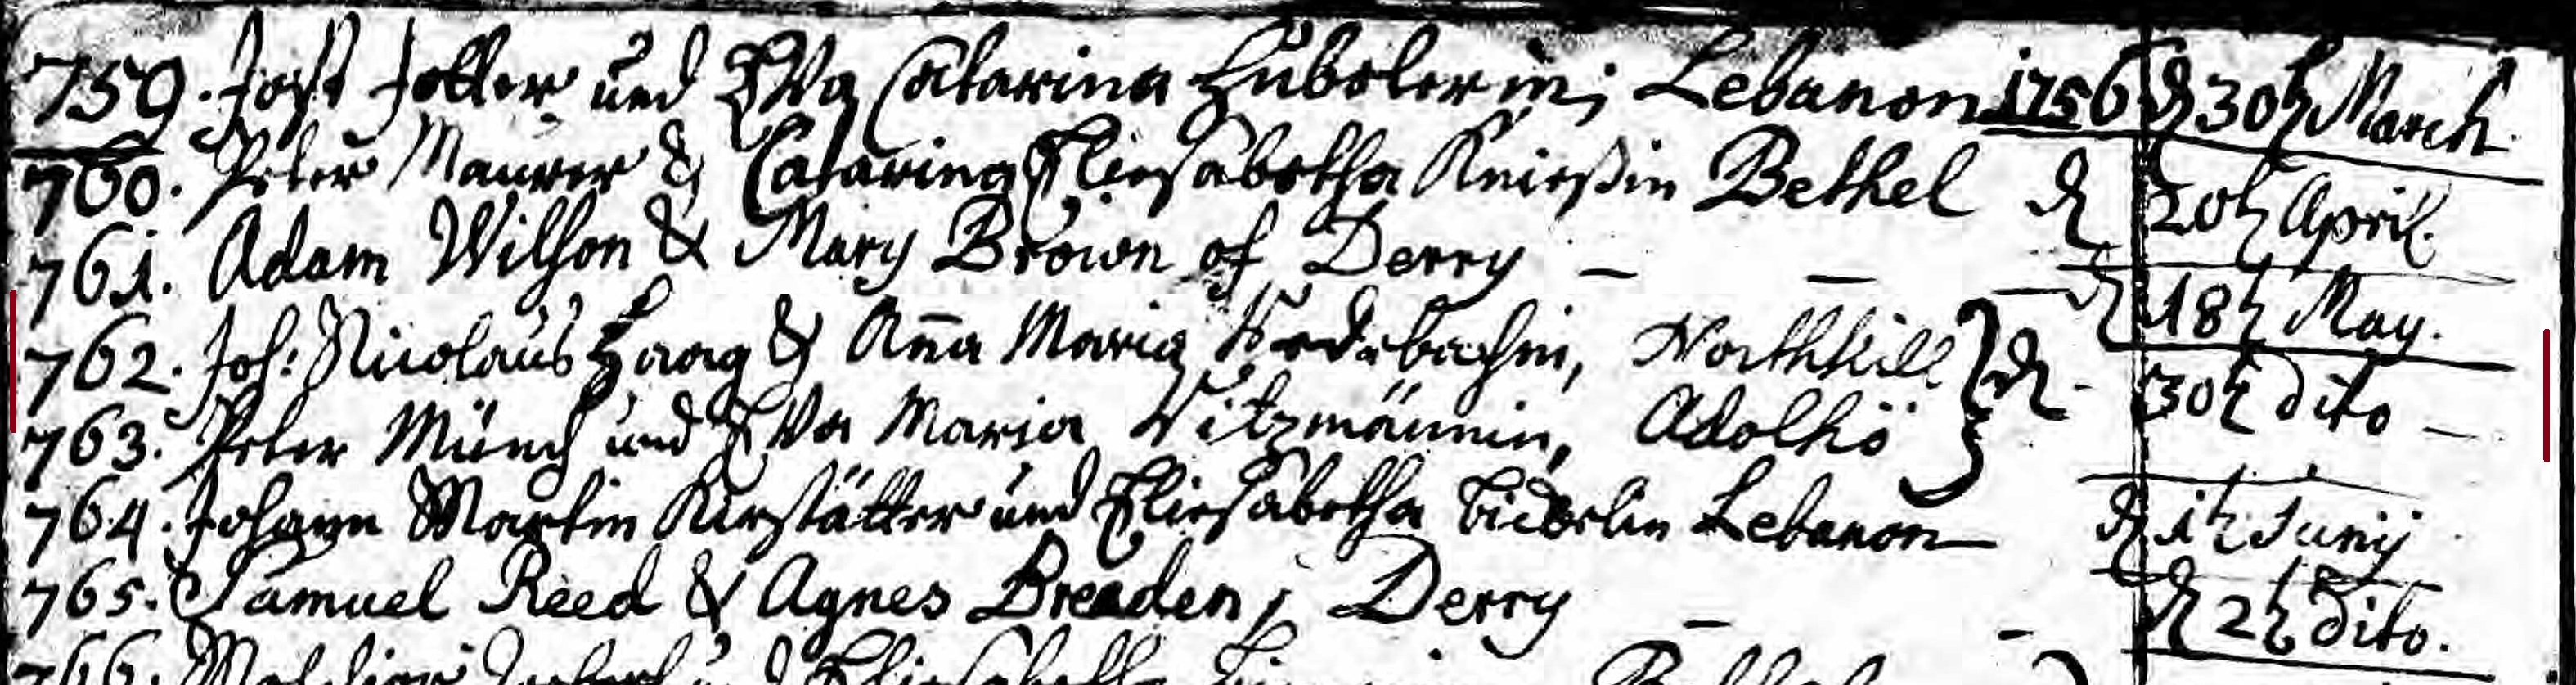 759. Jost Joller und Eva Catarina Hüblerin; Lebanon 1756 d 30t March.
760. Peter Maurer & Catarina Eliesabetha Knießin Bethel d 20t April.
761. Adam Wilson & Mary Brown of Derry — — d 18t May.
762. Joh: Nicolaus Haag & Aña Maria Northkill } d. 30t dito —
763. Peter Münch und Eva Maria Vitzmännin, Adolhö
764. Johann Martin Kirstätter und Eliesabetha Lebanon — d 1t Junij
765. Samuel Reed & Agnes Breaden; Derry — - d 2t dito.
766. Melchior